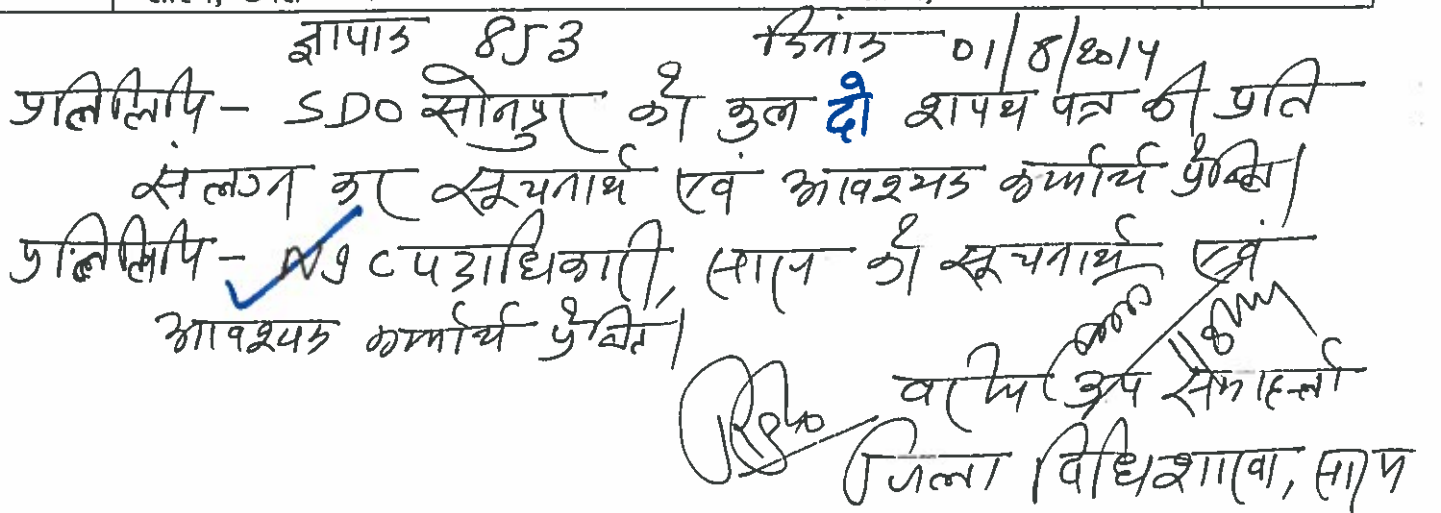 ज्ञापांक 853 दिनांक 01/8/2014
प्रतिलिपि - SDO सोनपुर को कुल दो शपथ पत्र की प्रति
संलग्न कर सूचनार्थ एवं आवश्यक कार्यार्थ प्रेषित।
प्रतिलिपि - NIC पदाधिकारी, सारण को सूचनार्थ एवं
आवश्यक कार्यार्थ प्रेषित।
वरीय उप समाहर्त्ता
जिला विधि शाखा, सारण